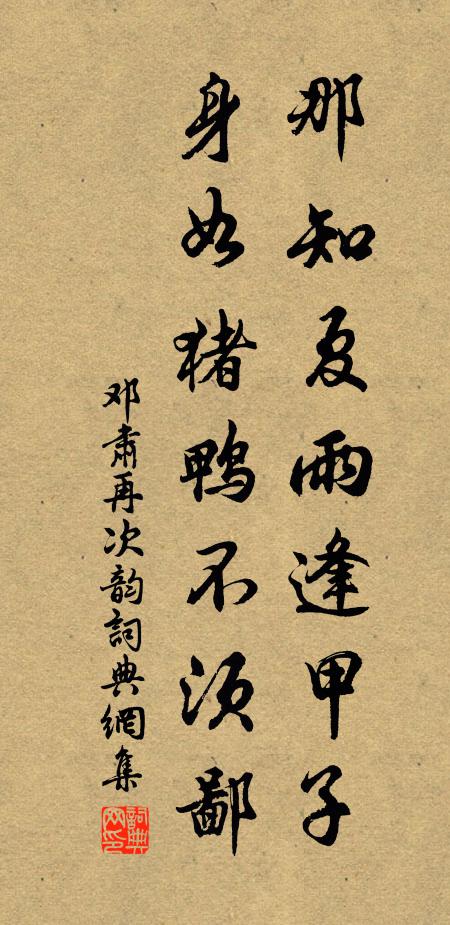 那知夏雨逢甲子
身如猪鴨不須鄙
邓肅再次韵詞典網集
詞典網印